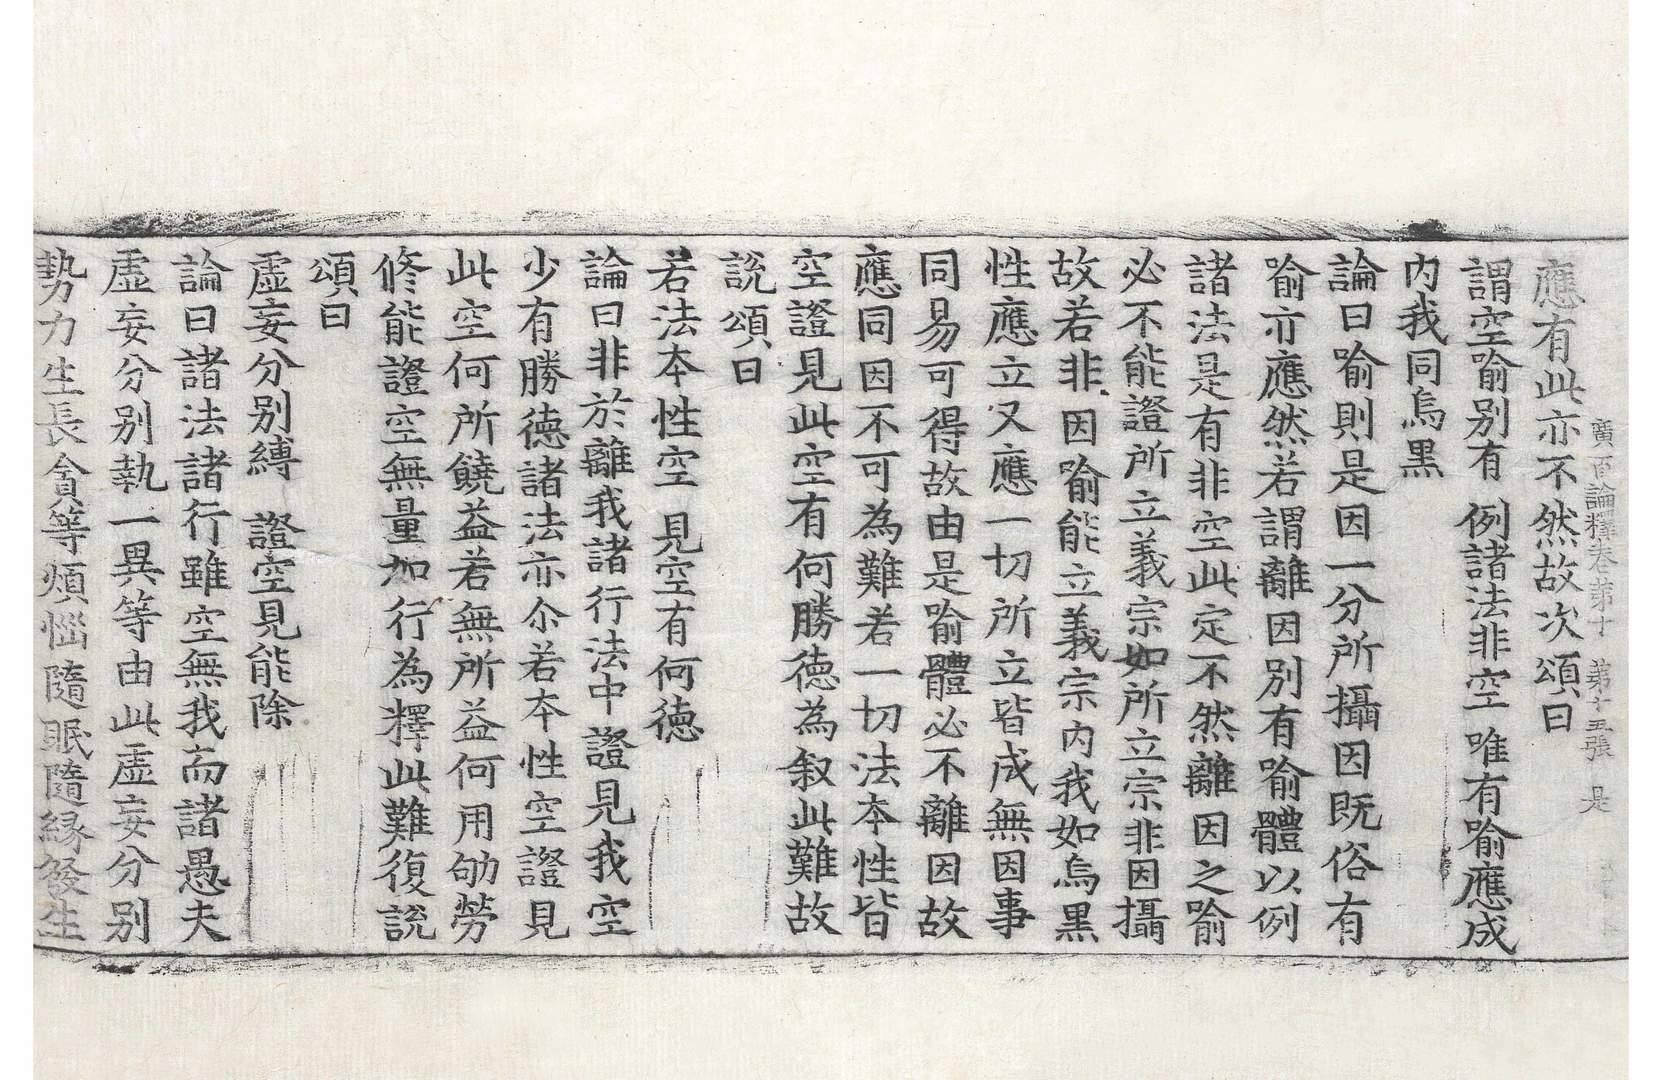 廣百論釋卷第十 第十五張 是
應有此亦不然故次頌曰
謂空喻别有 例諸法非空 唯有喻應成
内我同烏黑
論曰喻則是因一分所攝因既俗有
喻亦應然若謂離因别有喻體以例
諸法是有非空此定不然離因之喻
必不能證所立義宗如所立宗非因攝
故若非因喻能立義宗内我如烏黑
性應立又應一切所立皆成無因事
同易可得故由是喻體必不離因故
應同因不可為難若一切法本性皆
空證見此空有何勝徳為叙此難故
説頌曰
若法本性空 見空有何徳
論曰非於離我諸行法中證見我空
少有勝徳諸法亦尒若本性空證見
此空何所饒益若無所益何用劬勞
修能證空無量加行為釋此難復説
頌曰
虛妄分别縛 證空見能除
論曰諸法諸行雖空無我而諸愚夫
虛妄分别執一異等由此虛妄分别
勢力生長貪等煩惱隨眠隨緣發生